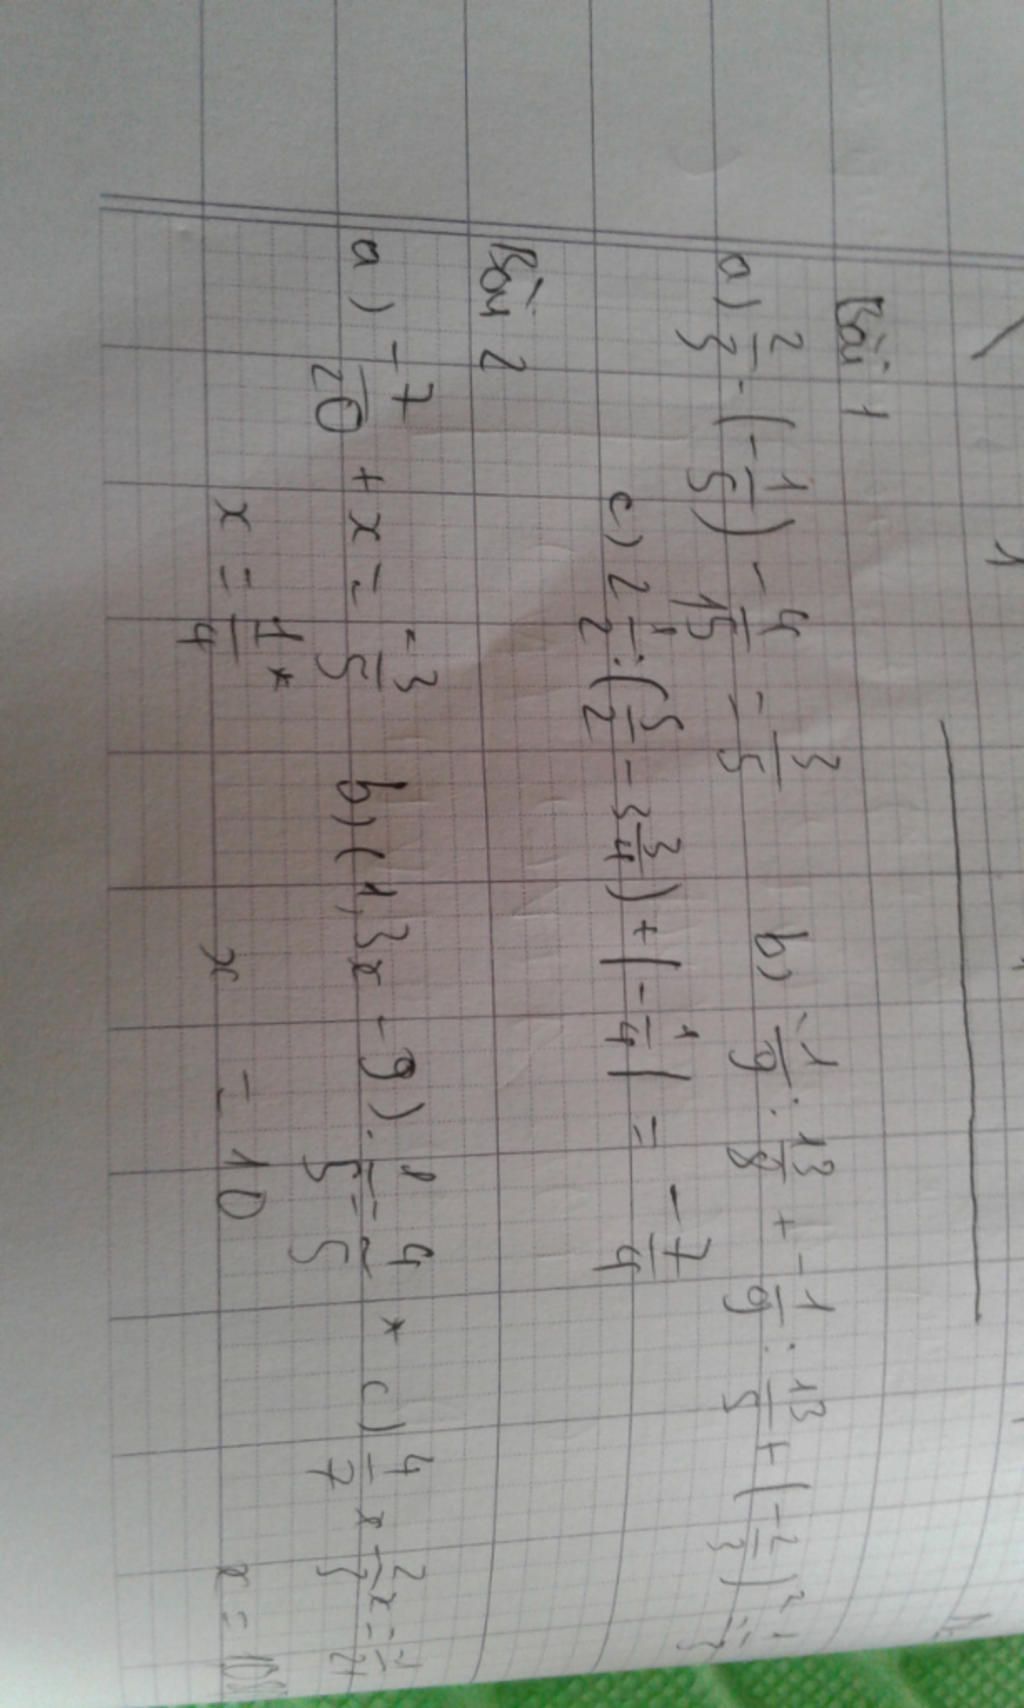 Bài 1
a) 2/3 . (-1/5) - 4/15 = 3/5 b) -1/9 : 13/8 + -1/9 : 13/5 + (-2/3)² = 1/3
c) 2 1/2 : (5/2 - 3 3/4) + |-1/4| = -7/4
Bài 2
a) -7/20 + x = -3/5 b) (1,3x - 9) . 1/5 = 4/5 * c) 4/7 x - 2/3 x = -1/21
x = 1/4 * x = 10 x =